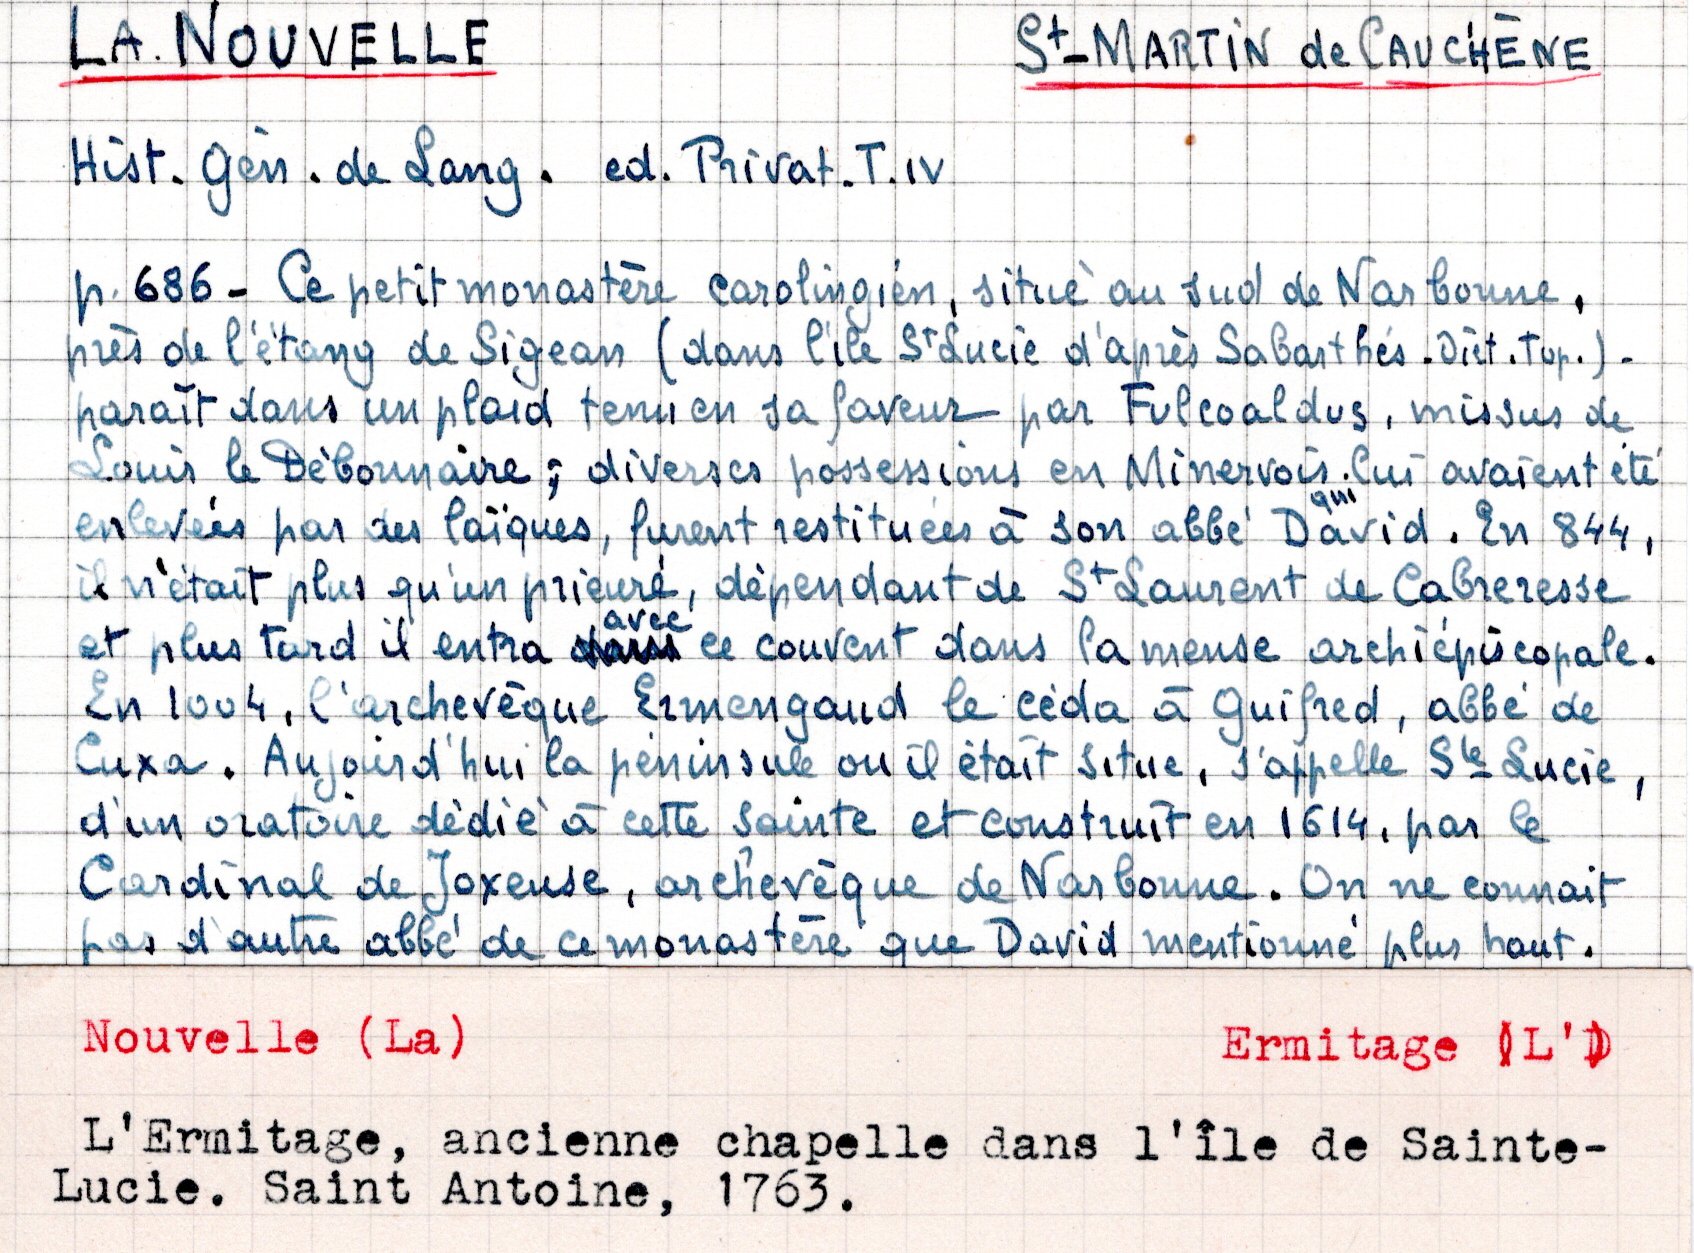 LA. NOUVELLE
St-MARTIN de CAUCHÈNE
Hist. Gén. de Lang. ed. Privat. T. IV
p. 686 - Ce petit monastère carolingién, situé au sud de Narbonne,
près de l'étang de Sigean (dans l'île St Lucie d'après Sabarthés - Dict. Top.) -
paraît dans un plaid tenu en sa faveur par Fulcoaldus, missus de
Louis le Débonnaire ; diverses possessions en Minervois. lui avaient été
qui
enlevées par des laïques, furent restituées à son abbé David. En 844,
il n'était plus qu'un prieuré, dépendant de St Laurent de Cabreresse
et plus tard il entra avec ce couvent dans la mense archiépiscopale.
En 1004, l'archevêque Ermengaud le céda à Guifred, abbé de
Cuxa. Aujourd'hui la péninsule ou il était situe, s'appelle Ste Lucie,
d'un oratoire dédié à cette sainte et construit en 1614, par le
Cardinal de Joxeuse, archevêque de Narbonne. On ne connait
pas d'autre abbé de ce monastère que David mentionné plus haut.
Nouvelle (La)
Ermitage (L')
L'Ermitage, ancienne chapelle dans l'île de Sainte-
Lucie. Saint Antoine, 1763.